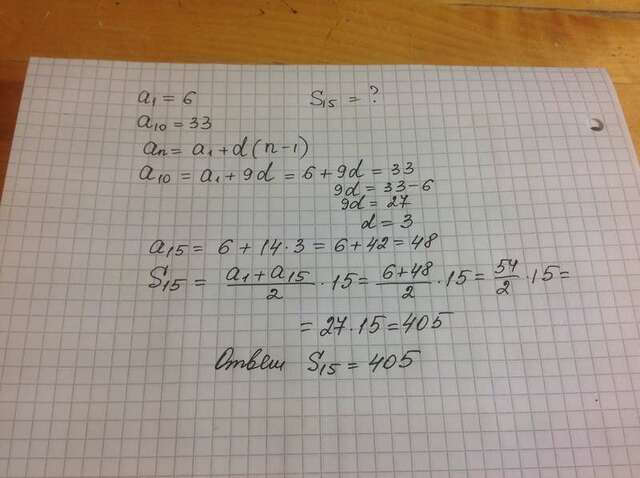 a₁ = 6 S₁₅ = ?
a₁₀ = 33
aₙ = a₁ + d(n-1)
a₁₀ = a₁ + 9d = 6 + 9d = 33
9d = 33-6
9d = 27
d = 3
a₁₅ = 6 + 14·3 = 6 + 42 = 48
S₁₅ = (a₁ + a₁₅)/2 · 15 = (6+48)/2 · 15 = 54/2 · 15 =
= 27·15 = 405
Ответ S₁₅ = 405